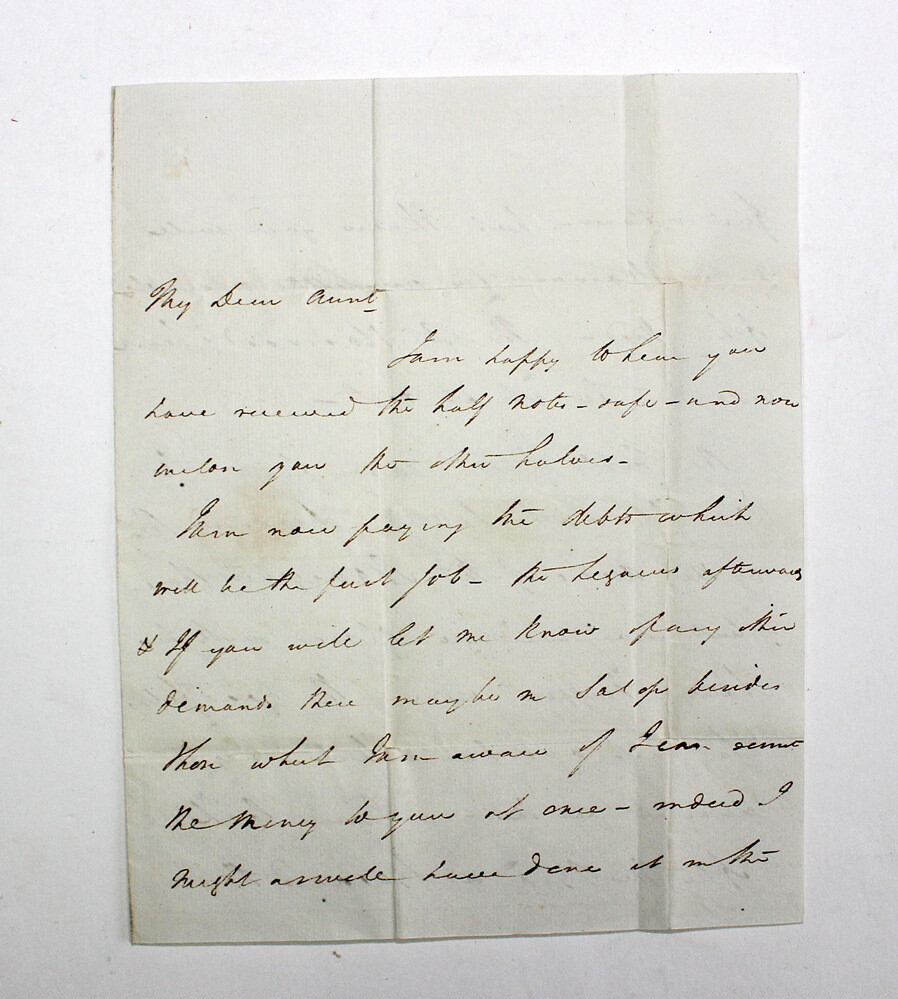 My Dear Aunt
I am happy to hear you
have received the half notes - safe - and now
enclose you the other halves -
I am now paying the debts which
will be the first Job - the Legacies afterwards
& If you will let me know of any other
demands there may be in Salop besides
those which I am aware of I can remit
the money to you at once - indeed I
might as well have done it in the